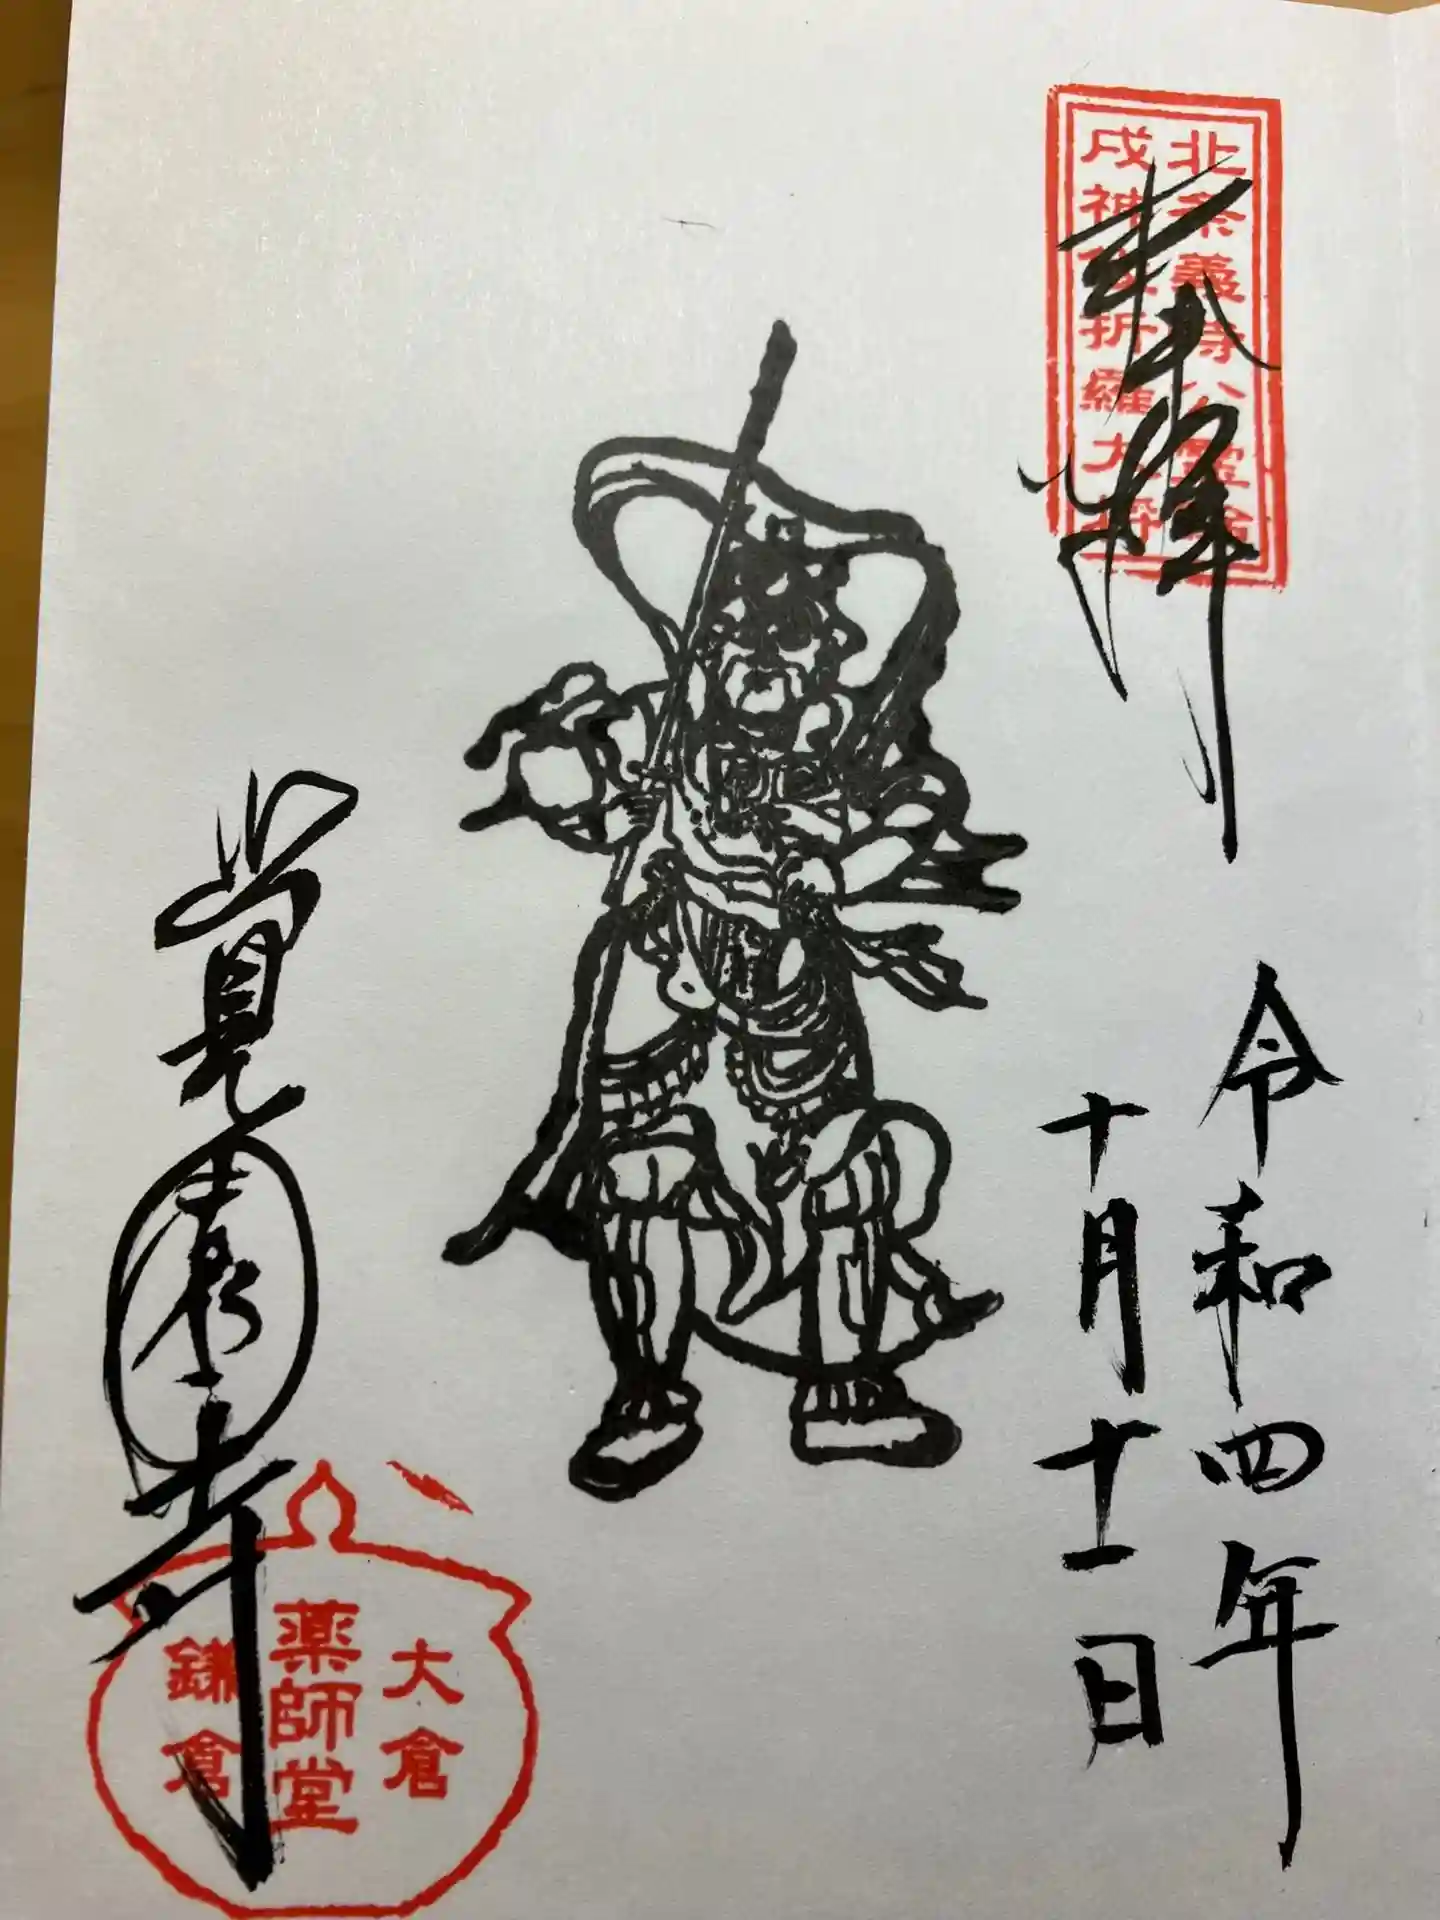 北条義時公霊
戌神伐折羅大将
奉拝
令和四年
十月十一日
覚園寺
大倉
薬師堂
鎌倉